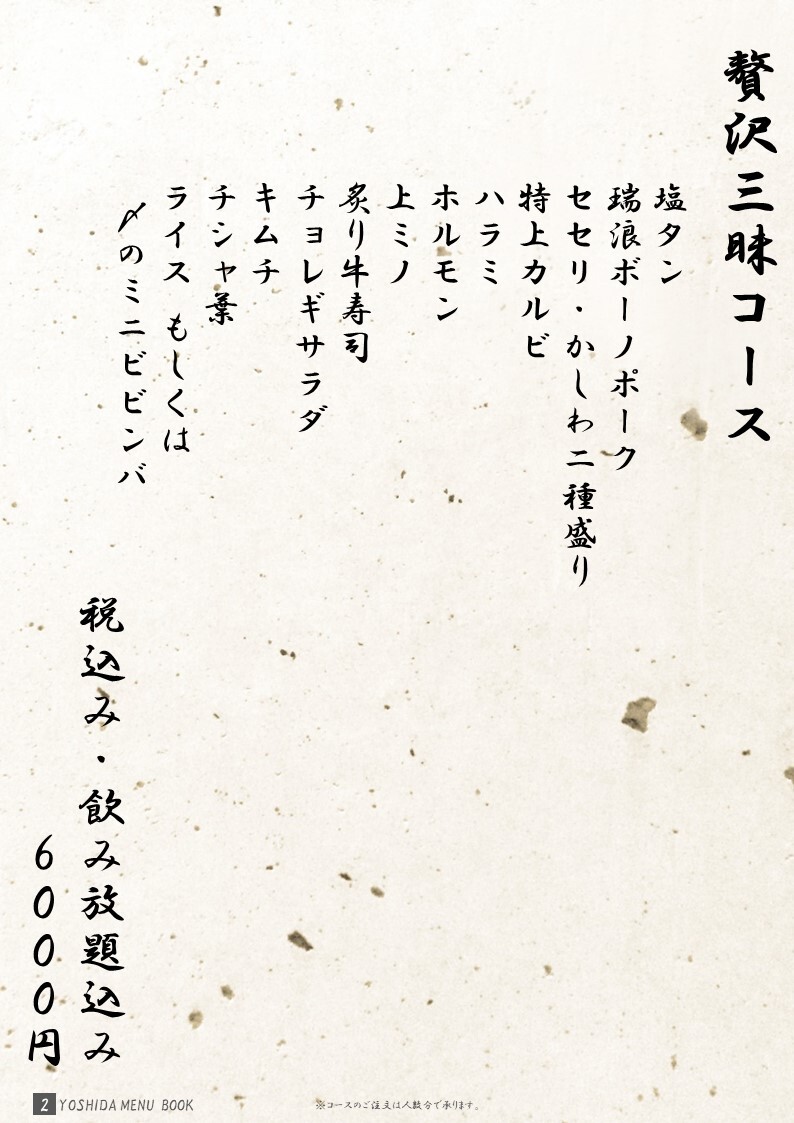 贅沢三昧コース
塩タン
瑞浪ボーノポーク
セセリ・かしわ二種盛り
特上カルビ
ハラミ
ホルモン
上ミノ
炙り牛寿司
チョレギサラダ
キムチ
チシャ葉
ライス もしくは
〆のミニビビンバ
税込み・飲み放題込み
6000円
2 YOSHIDA MENU BOOK
※コースのご注文は人数分で承ります。